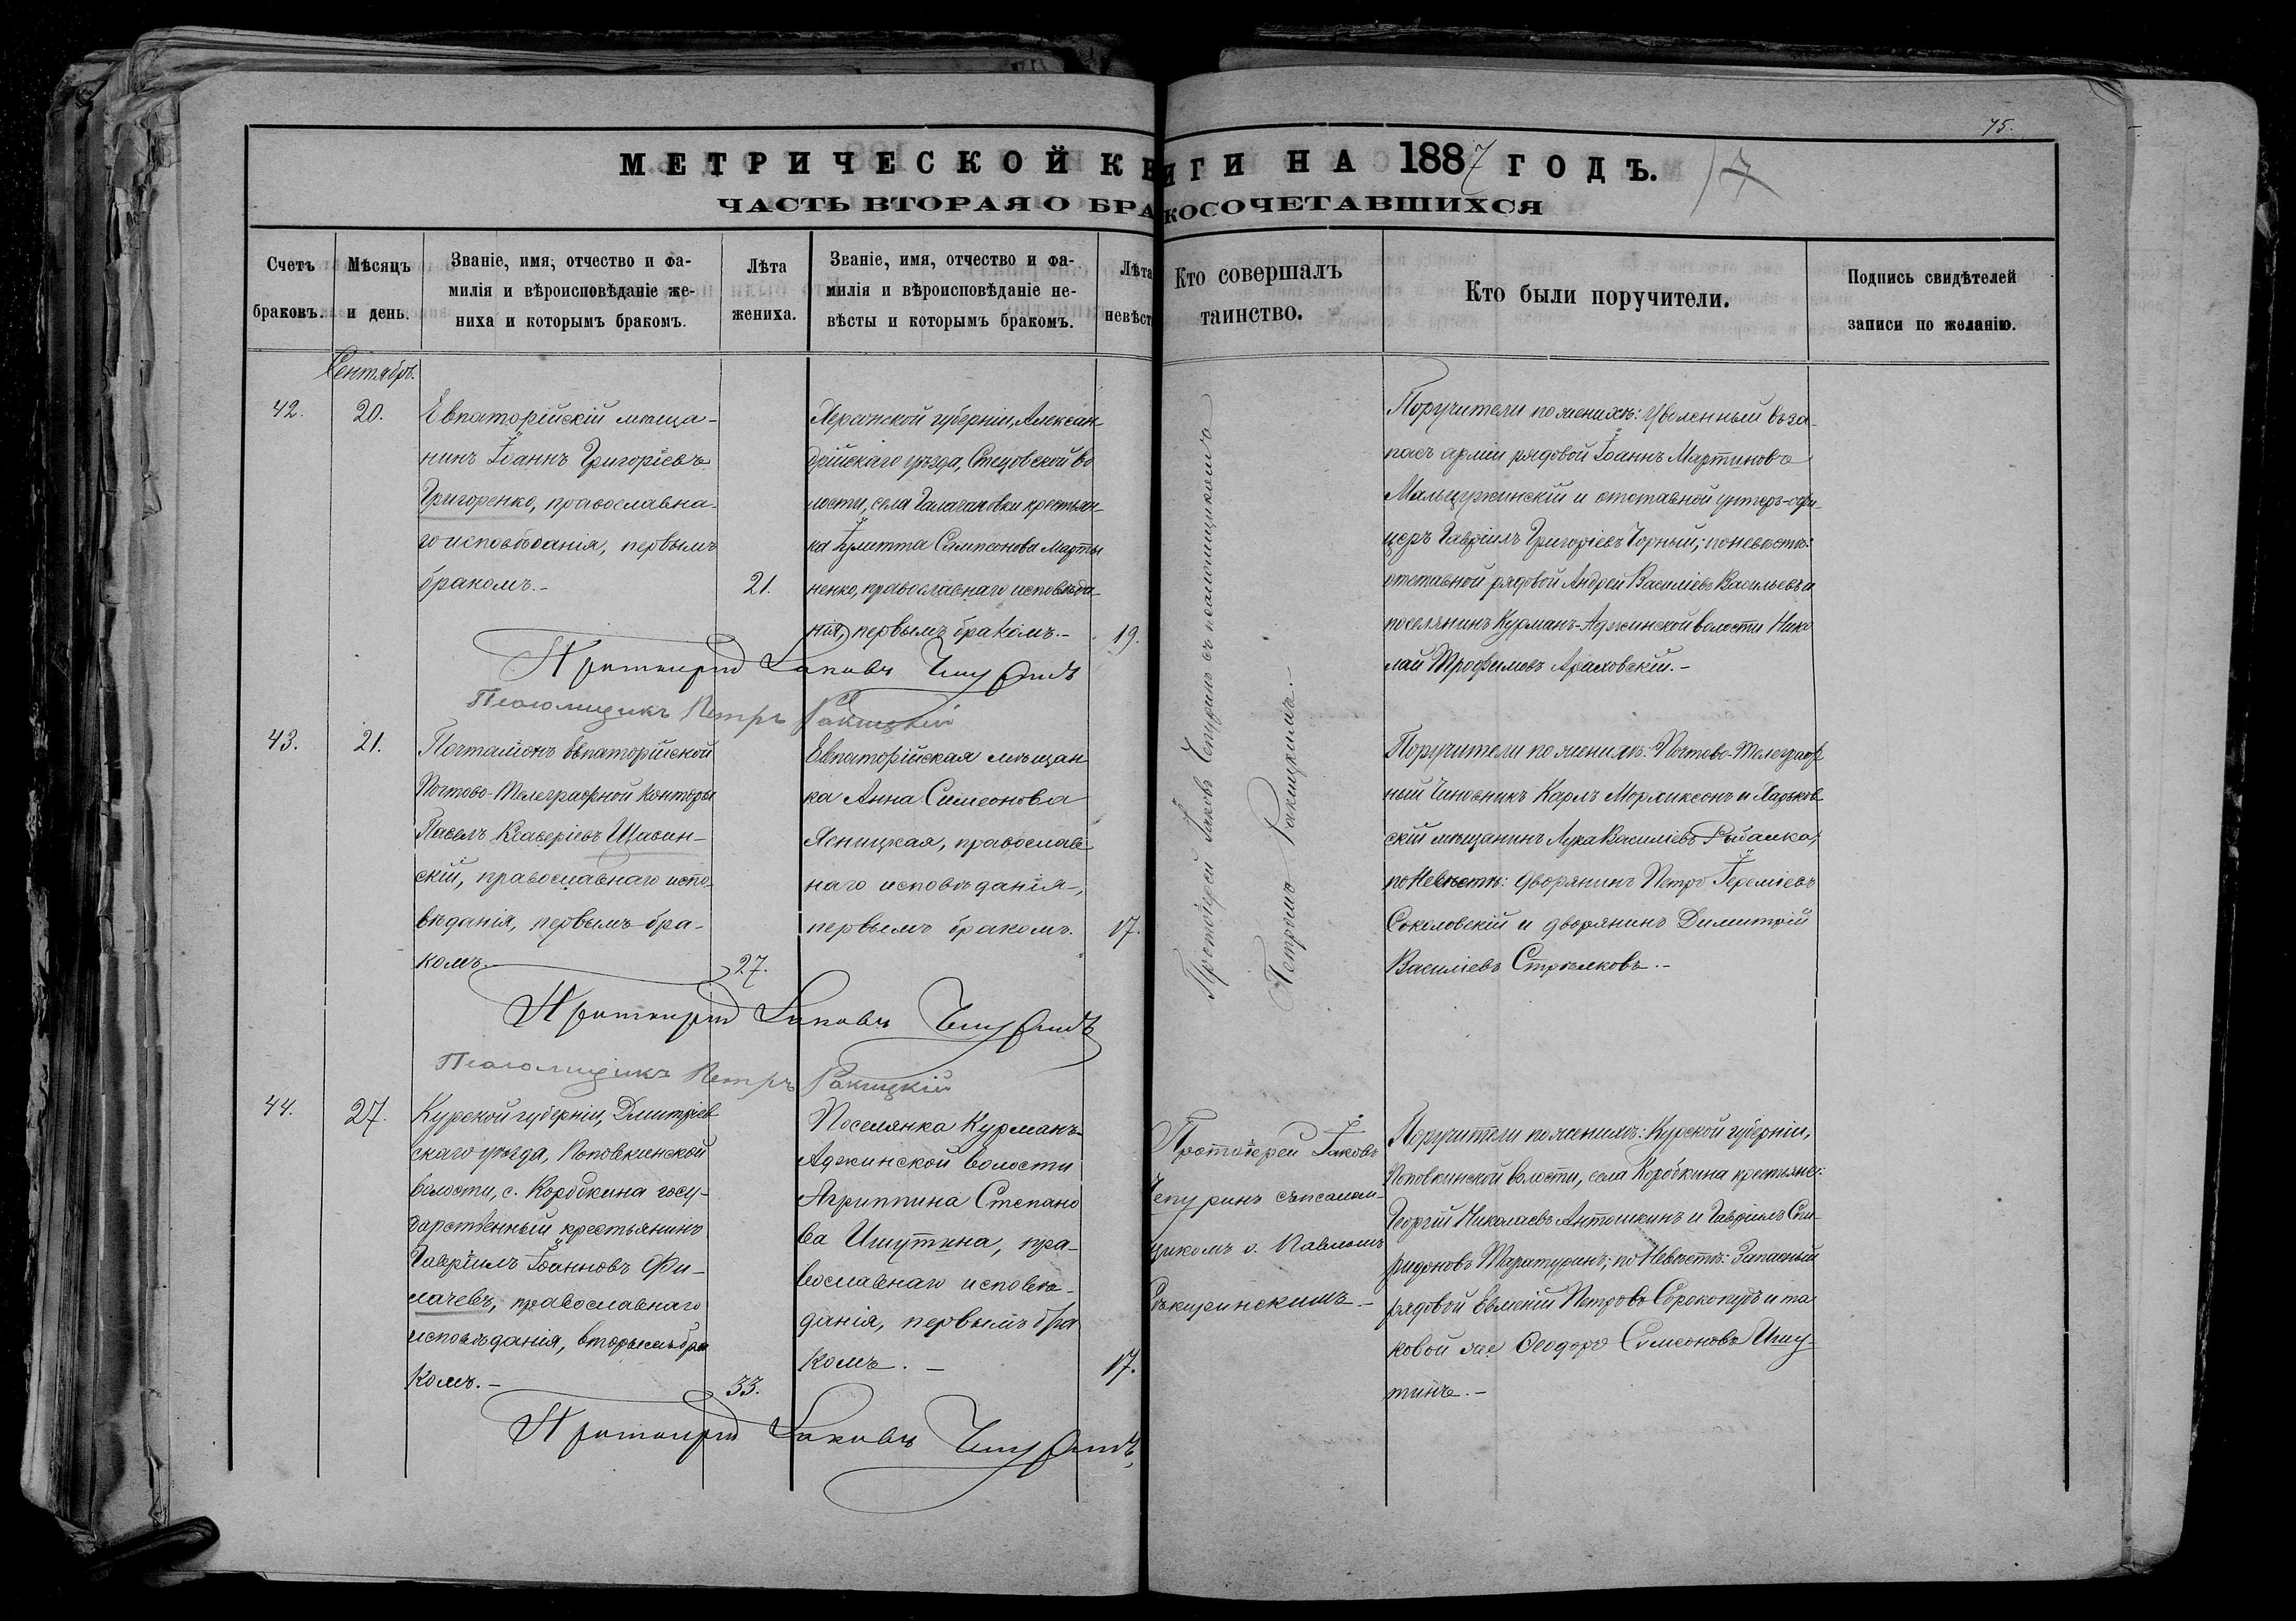 75.
МЕТРИЧЕСКОЙ КНИГИ НА 1887 ГОДЪ.
17
ЧАСТЬ ВТОРАЯ О БРАКОСОЧЕТАВШИХСЯ
Счетъ браковъ.
Мѣсяцъ и день.
Званіе, имя, отчество и фа-
милія и вѣроисповѣданіе же-
ниха и которымъ бракомъ.
Лѣта
жениха.
Званіе, имя, отчество и фа-
милія и вѣроисповѣданіе не-
вѣсты и которымъ бракомъ.
Лѣта
невѣст
Кто совершалъ
таинство.
Кто были поручители.
Подпись свидѣтелей
записи по желанію.
Сентябрь.
42.
20.
Евпаторійскій мѣща-
нинъ Іоаннъ Григоріевъ
Григоренко, православна-
го исповѣданія, первымъ
бракомъ.-
21.
Херсонской губерніи, Алексан-
дрійскаго уѣзда, Стецовской во
лости, села крестьян-
ка Іулитта Сампсонова Марты
ненко, православнаго исповѣда-
нія, первымъ бракомъ.-
19.
Протоіерей Іаковъ Чепуринъ съ псаломщикомъ
Петромъ Ракицкимъ.-
Поручители по женихѣ: Уволенный въ за-
пасъ арміи рядовой Іоаннъ Мартиновъ
и отставной унтеръ-офи-
церъ Гавріилъ Григоріевъ Чорный; по невѣстѣ:
отставной рядовой Андрей Василіевъ Васильевъ и
поселянинъ Курманъ-Аджинской волости Нико
лай Трофимовъ Араховскій.-
Протоіерей Іаковъ Чепуринъ
Псаломщикъ Петръ Ракицкій
43.
21.
Почталіонъ Евпаторійской
Почтово-Телеграфной Конторы
Павелъ Ксаверіевъ Шавин-
скій, православнаго испо-
вѣданія, первымъ бра-
комъ.
27.
Евпаторійская мѣщан
ка Анна Симеонова
Ясницкая, православ
наго исповѣданія,
первымъ бракомъ.
17.
Поручители по женихѣ: Почтово-Телеграф
ный Чиновникъ Карлъ и Харьков
скій мѣщанинъ Лука Василіевъ Рыбалка;
по Невѣстѣ: Дворянинъ Петръ Іереміевъ
Соколовскій и дворянинъ Димитрій
Василіевъ Стрѣлковъ.-
Протоіерей Іаковъ Чепуринъ
Псаломщикъ Петръ Ракицкій
44.
27.
Курской губерніи, Дмитріев
скаго уѣзда, Поповкинской
волости, с. Коробкина госу-
дарственный крестьянинъ
Гавріилъ Іоанновъ Фи-
лачевъ, православнаго
исповѣданія, вторымъ бра
комъ.-
33.
Поселянка Курманъ-
Аджинской волости
Агриппина Степано
ва Ишутина, пра-
вославнаго исповѣ-
данія, первымъ бра
комъ.-
17.
Протоіерей Іаковъ
Чепуринъ съ псалом-
щикомъ о. Павломъ
Поручители по женихѣ: Курской губерніи,
Поповкинской волости, села Коробкина крестьяне:
Георгій Николаевъ Антошкинъ и Гавріилъ Спи-
ридоновъ; по Невѣстѣ: Запасный
рядовой Евменій Петровъ Сорокопудъ и та
ковой же Ѳеодоръ Симеоновъ Ишу-
тинъ.-
Протоіерей Іаковъ Чепуринъ